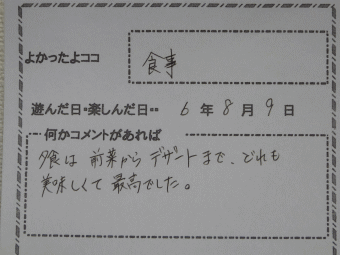 よかったよココ
食事
遊んだ日・楽しんだ日・・ 6 年 8 月 9 日
何かコメントがあれば
夕食は 前菜から デザートまで、どれも
美味しくて 最高でした。